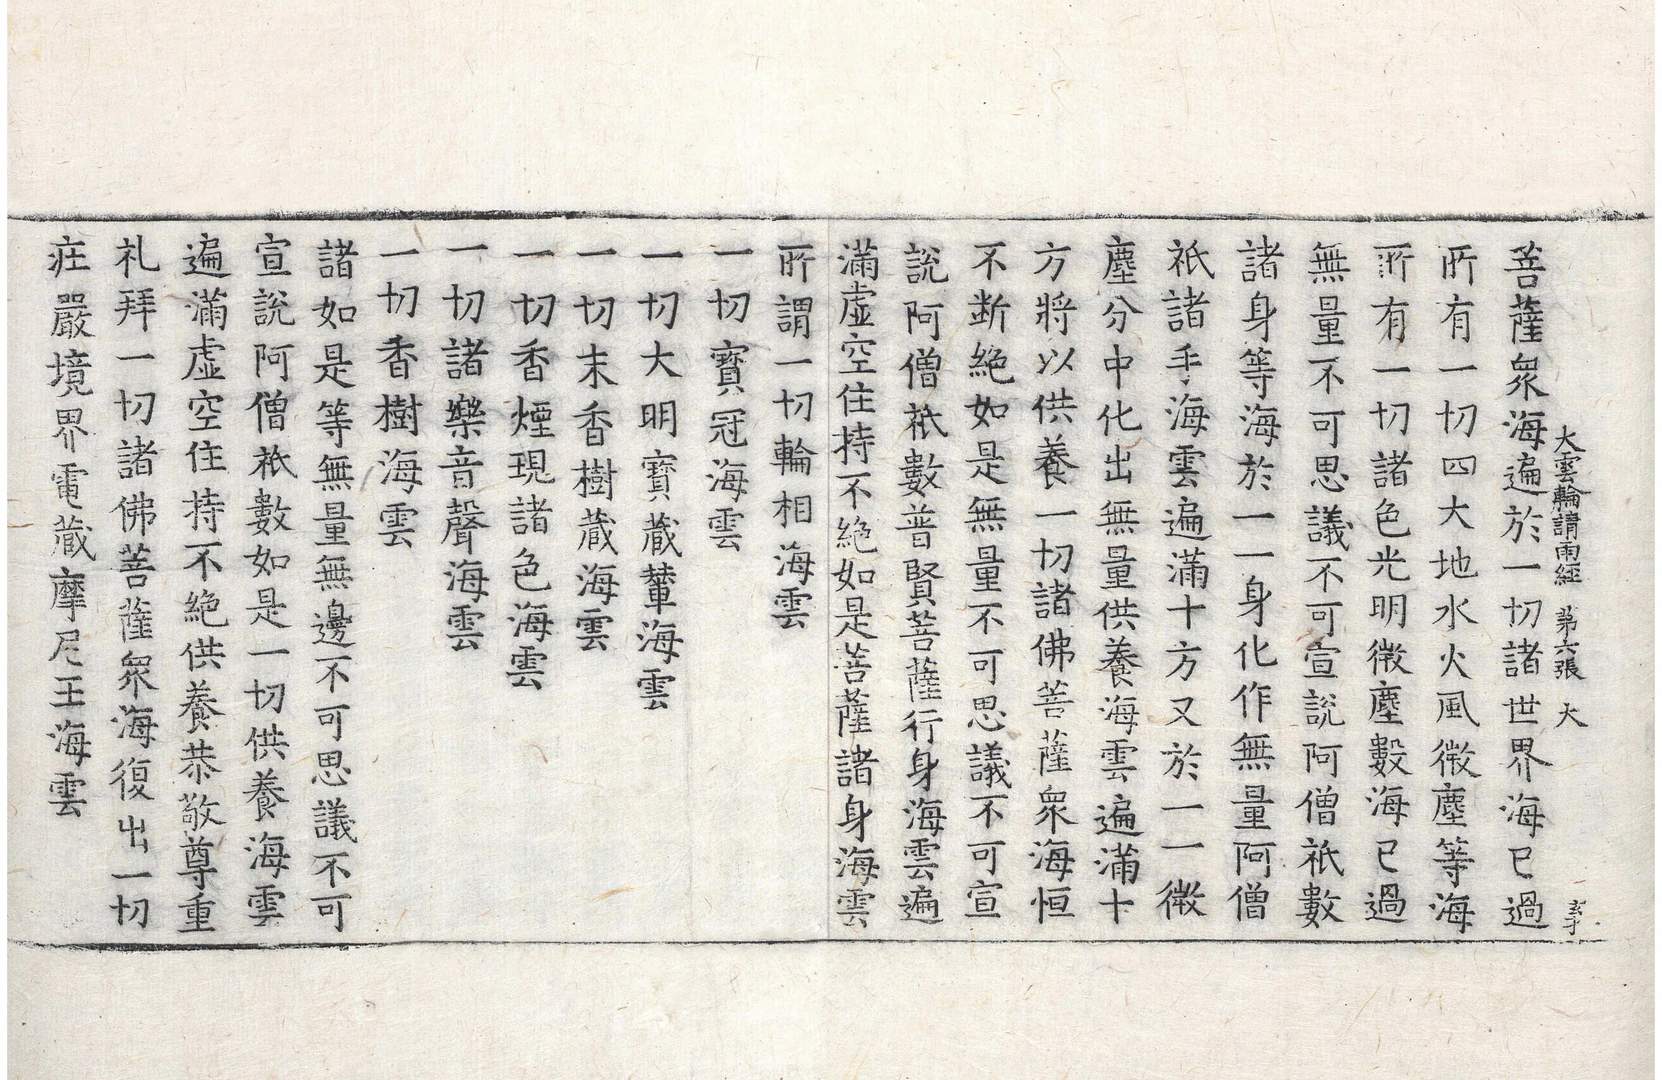 大雲輪請雨經 第六張 大
菩薩衆海遍於一切諸世界海已過
所有一切四大地水火風微塵等海
所有一切諸色光明微塵數海已過
無量不可思議不可宣說阿僧祇數
諸身等海於一一身化作無量阿僧
祇諸手海雲遍滿十方又於一一微
塵分中化出無量供養海雲遍滿十
方將以供養一切諸佛菩薩衆海恒
不斷絕如是無量不可思議不可宣
說阿僧祇數普賢菩薩行身海雲遍
滿虛空住持不絕如是菩薩諸身海雲
所謂一切輪相海雲
一切寶冠海雲
一切大明寶蔵輦海雲
一切末香樹蔵海雲
一切香煙現諸色海雲
一切諸樂音聲海雲
一切香樹海雲
諸如是等無量無邊不可思議不可
宣說阿僧祇數如是一切供養海雲
遍滿虛空住持不絕供養恭敬尊重
礼拜一切諸佛菩薩衆海復出一切
庄嚴境界電蔵摩尼王海雲